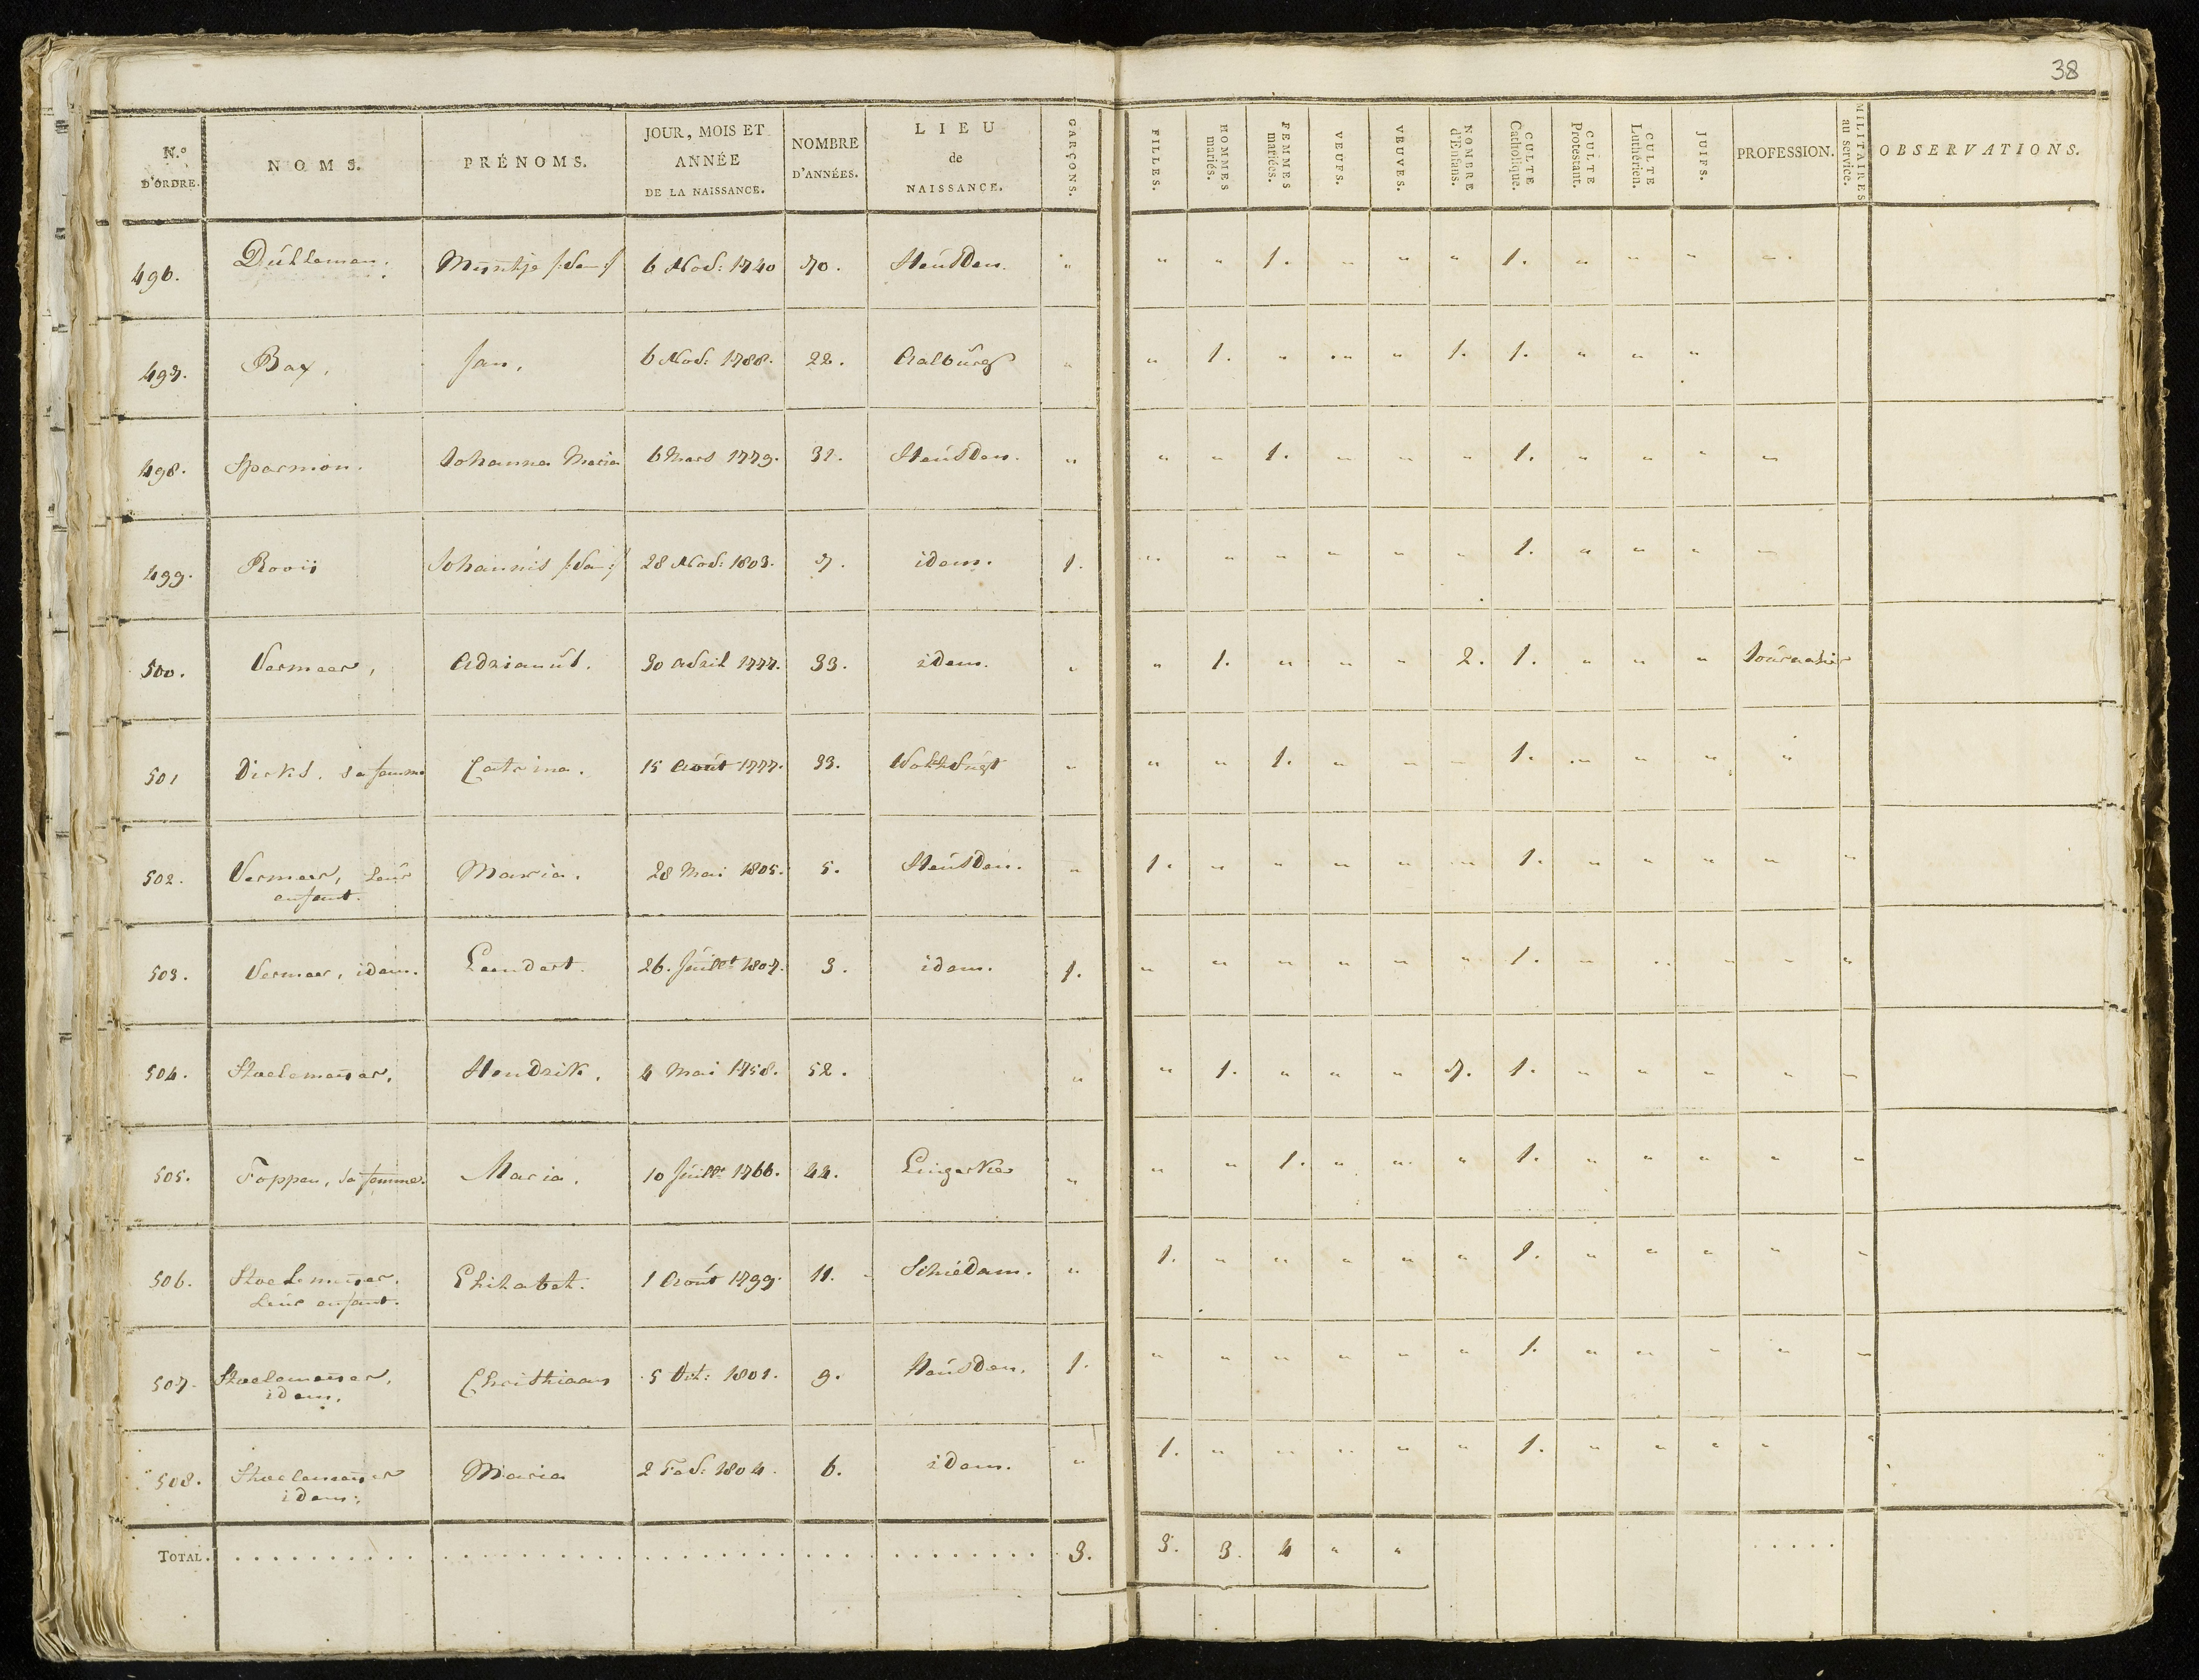 38
N.º D'ORDRE. NOMS. PRÉNOMS. JOUR, MOIS ET ANNÉE DE LA NAISSANCE. NOMBRE D'ANNÉES. LIEU de NAISSANCE. GARÇONS. FILLES. HOMMES mariés. FEMMES mariées. VEUFS. VEUVES. NOMBRE d'Enfans. CULTE Catholique. CULTE Protestant. CULTE Luthérien. JUIFS. PROFESSION. MILITAIRES au service. OBSERVATIONS.
496. 6 Nov: 1740 70. Heusden. " " " 1. " " " 1. " " " "
497. Bax, Jan, 6 Nov: 1788. 22. Aalburg " " 1. " " " 1. 1. " " "
498. Sparmon. Johanna Maria 6 Mars 1779. 31. Heusden. " " " 1. " " " 1. " " " "
499. Rooij Johannis 28 Nov: 1803. 7. idem. 1. " " " " " " 1. " " " "
500. Vermeer, Adrianus. 30 Avril 1777. 33. idem. " " 1. " " " 2. 1. " " " Journalier
501 Dirks. sa femme Catrina. 15 Août 1777. 33. " " " 1. " " " 1. " " " "
502. Vermeer, leur Maria. 28 Mai 1805. 5. Heusden. " 1. " " " " " 1. " " " " "
enfant.
503. Vermeer, idem. Leendert. 26. Juillet 1807. 3. idem. 1. " " " " " " 1. " " " " "
504. Hendrik, 4 Mai 1758. 52. " " 1. " " " 7. 1. " " " " "
505. Foppen, sa femme. Maria. 10 Juillt 1766. 44. " " " 1. " " " 1. " " " " "
506. Elizabet. 1 Août 1799. 11. Schiedam. " 1. " " " " " 1. " " " " "
leur enfant.
507. Christiaan 5 Oct: 1801. 9. Heusden. 1. " " " " " " 1. " " " " "
idem.
508. Maria 2 Fev: 1804. 6. idem. " 1. " " " " " 1. " " " " "
idem.
TOTAL. 3. 3. 3. 4 " "